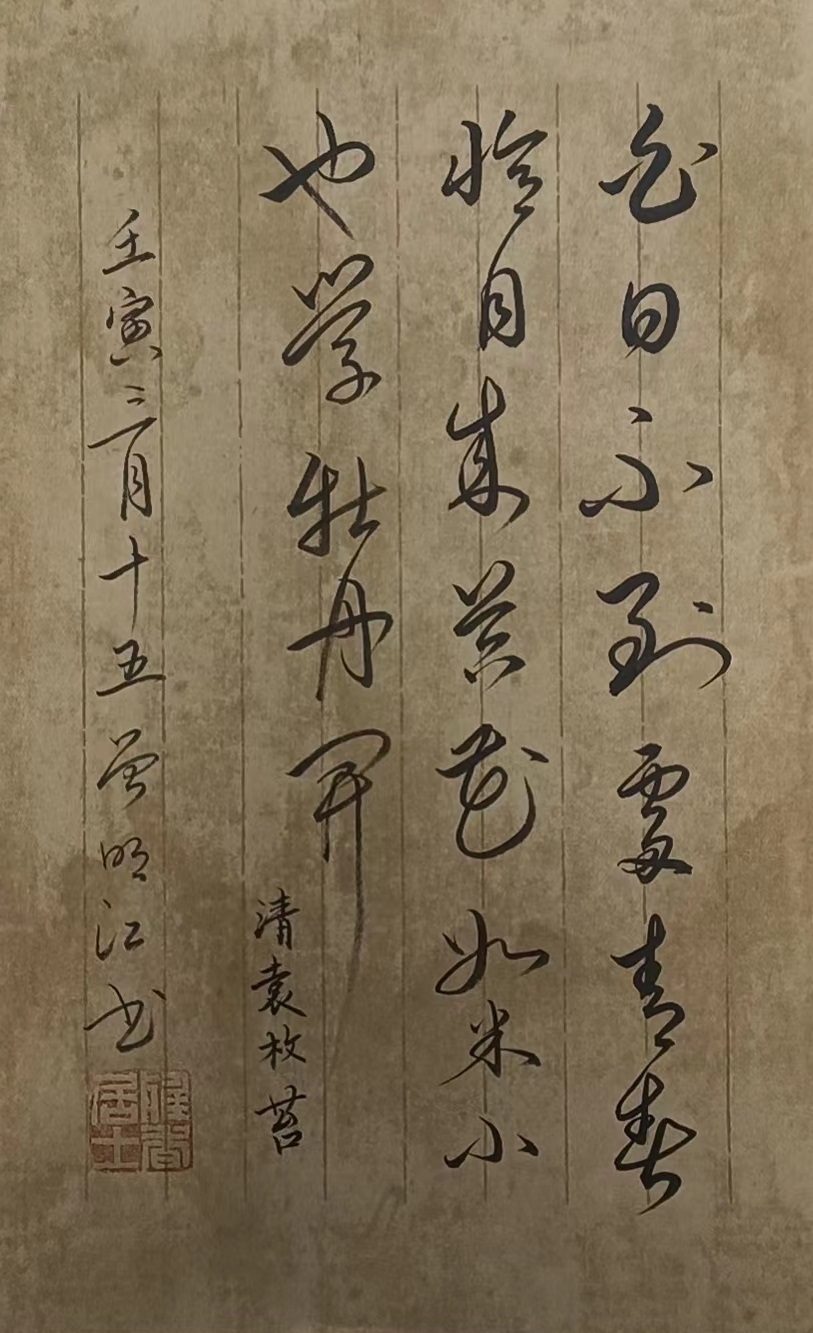 白日不到處青春
恰自来苔花如米小
也学牡丹開
清袁枚苔
壬寅三月十五曾明江书
居士